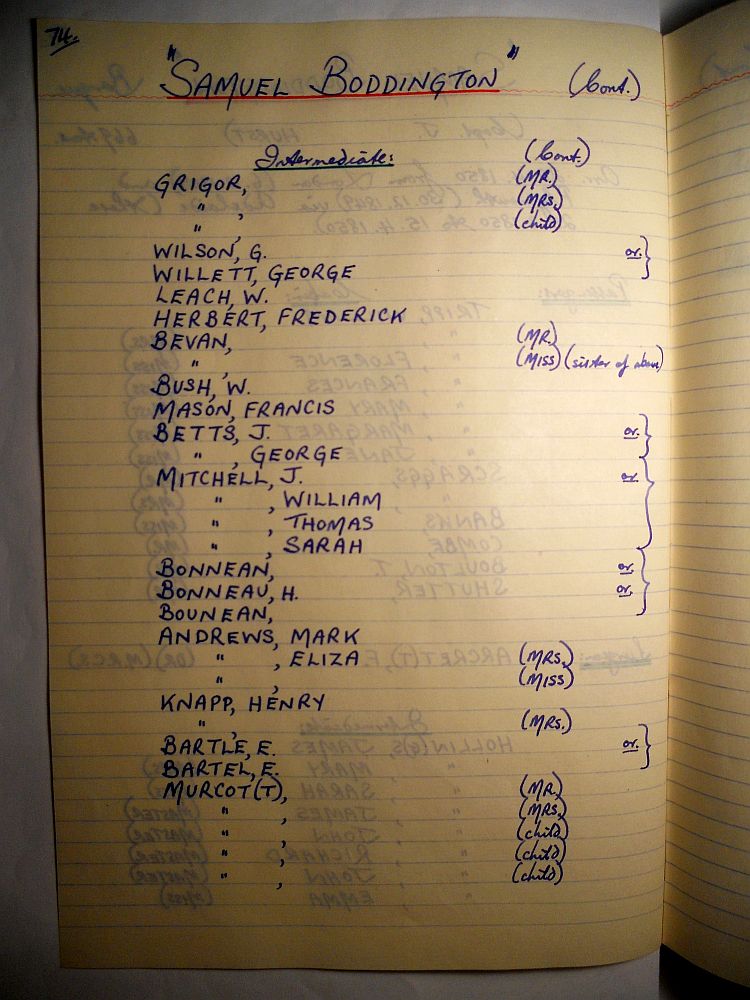 74.
"SAMUEL BODDINGTON" (Cont.)
Intermediate: (Cont.)
GRIGOR, (MR.)
" , (MRS.)
" , (child)
WILSON, G. or.
WILLETT, GEORGE
LEACH, W.
HERBERT, FREDERICK
BEVAN, (MR.)
" , (MISS) (sister of above)
BUSH, W.
MASON, FRANCIS
BETTS, J. or.
" , GEORGE
MITCHELL, J. or.
" , WILLIAM
" , THOMAS
" , SARAH
BONNEAN, or.
BONNEAU, H. or.
BOUNEAN,
ANDREWS, MARK
" , ELIZA (MRS.)
" , (MISS)
KNAPP, HENRY
" , (MRS.)
BARTLE, E. or.
BARTEL, E.
MURCOT(T), (MR.)
" , (MRS.)
" , (child)
" , (child)
" , (child)